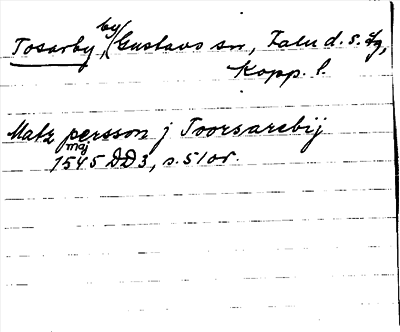 Tosarby, by, Gustavs sn, Falu d. s. fg,
Kopp. l.
Matz persson j Toorsarebij
maj
1545 DD3, s. 51 or.